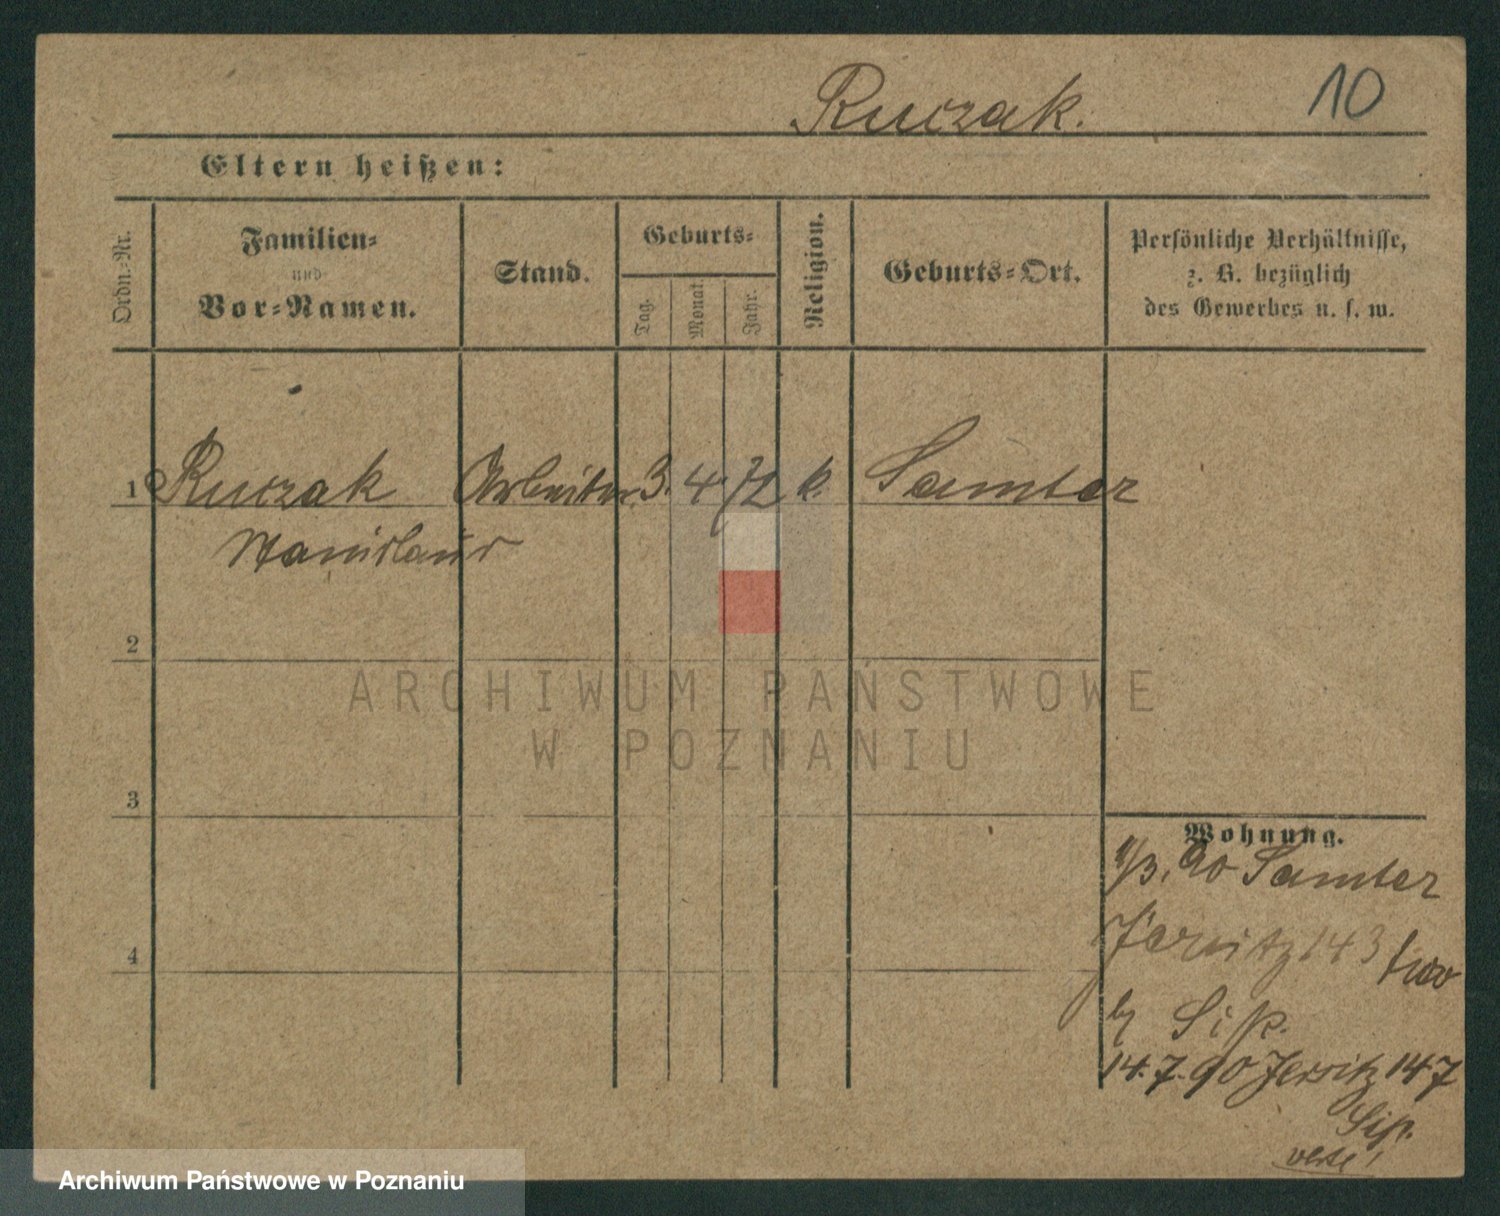 Ruczak.
10
Eltern heißen:
Ordn.-Nr.
Familien-
und
Vor-Namen.
Stand.
Geburts-
Tag.
Monat.
Jahr.
Religion.
Geburts-Ort.
Persönliche Verhältnisse,
z. B. bezüglich
des Gewerbes u. s. w.
1 Ruczak Arbeiter 3. 4. 72 k. Samter
Stanislaus
2
ARCHIWUM PAŃSTWOWE
W POZNANIU
3
Wohnung.
90 Samter
4
Jersitz 143
14.7.90 Jersitz 147
Archiwum Państwowe w Poznaniu